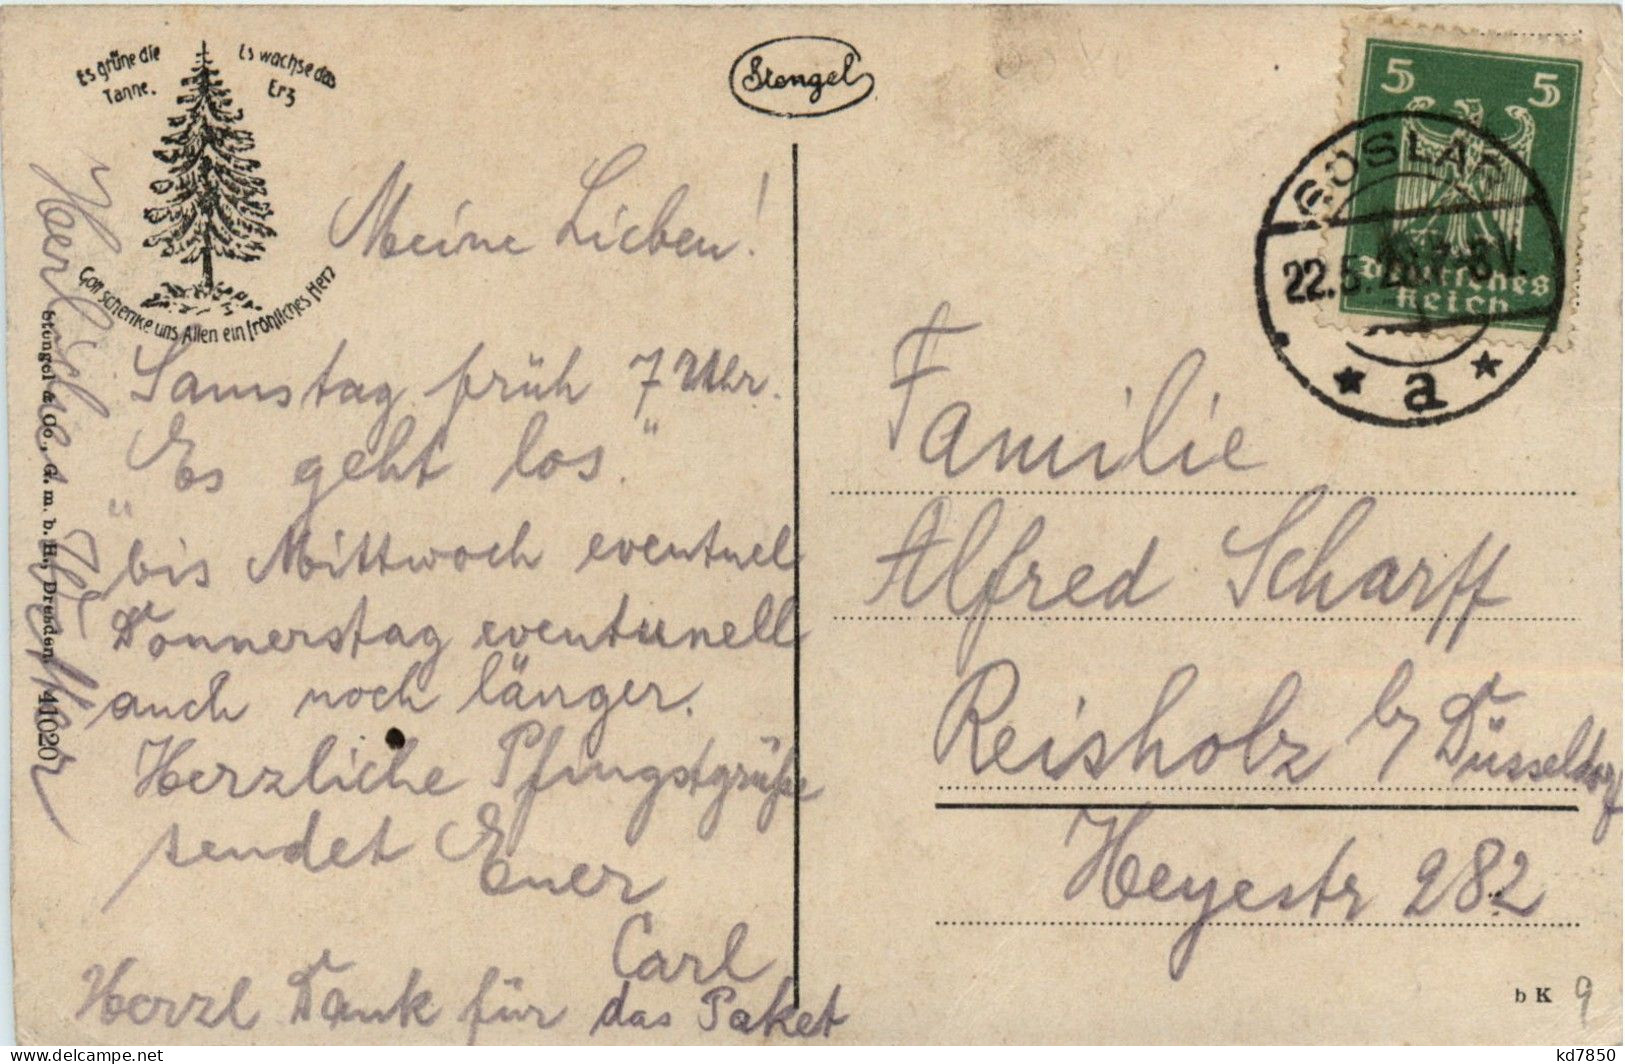 Es grüne die
Tanne.
Es wachse das
Erz
Gott schenke uns Allen ein fröhliches Herz
Stengel
Meine Lieben!
Samstag früh 7 Uhr.
„Es geht los.“
bis Mittwoch eventuel
Donnerstag eventunell
auch noch länger.
Herzliche Pfingstgrüße
sendet Euer
Carl
Herzl Dank für das Paket
Herzliche
Stengel & Co., G. m. b. H., Dresden 41020
5 5
Deutsches
Reich
GOSLAR
22.5.26.7-8V.
* a *
Familie
Alfred Scharff
Reisholz b/ Düsseldorf
Heyestr 282
b K 9
kd7850